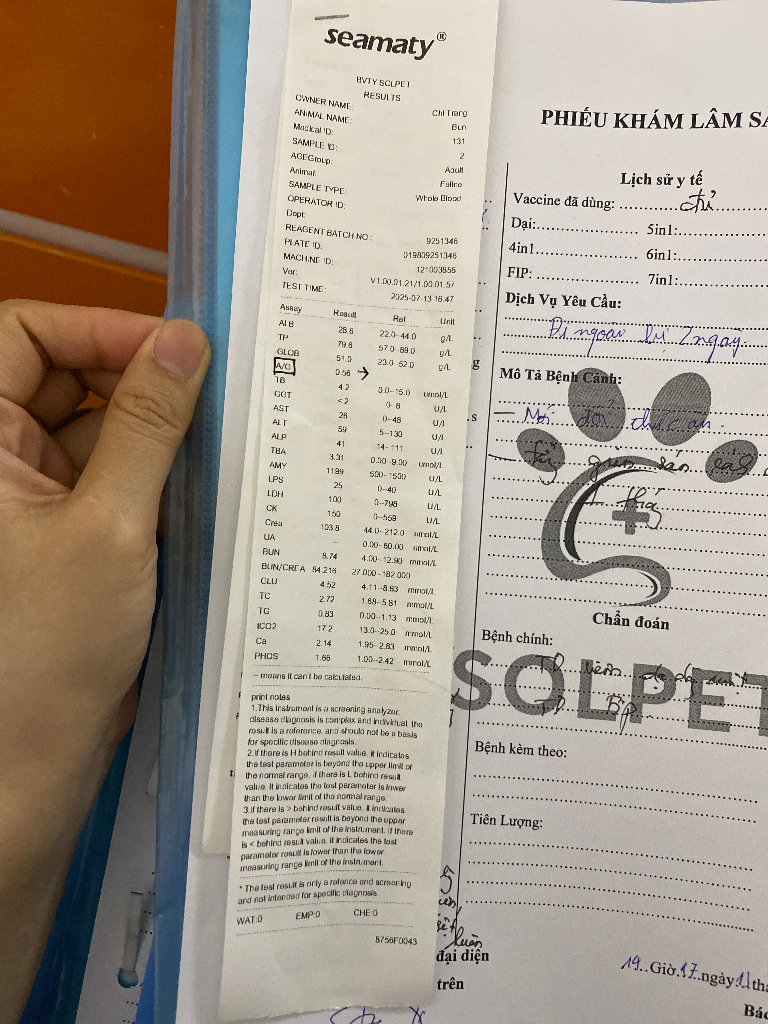 seamaty®
BVTY SOLPET
RESULTS
OWNER NAME: Chi Trang
ANIMAL NAME: Bun
Medical ID: 131
SAMPLE ID: 2
AGEGroup: Adult
Animal: Feline
SAMPLE TYPE: Whole Blood
OPERATOR ID:
Dept:
REAGENT BATCH NO.: 9251346
PLATE ID: 019809251346
MACHINE ID: 121003556
Ver: V1.00.01.21/1.00.01.57
TEST TIME: 2025-07-13 16:47
Assay Result Ref Unit
ALB 28.6 22.0--44.0 g/L
TP 79.6 57.0--89.0 g/L
GLOB 51.0 23.0--52.0 g/L
A/G 0.56 →
TB 4.2 0.0--15.0 umol/L
GGT <2 0--8 U/L
AST 26 0--48 U/L
ALT 59 5--130 U/L
ALP 41 14--111 U/L
TBA 3.31 0.00--9.00 umol/L
AMY 1199 500--1500 U/L
LPS 25 0--40 U/L
LDH 100 0--798 U/L
CK 150 0--559 U/L
Crea 103.8 44.0--212.0 umol/L
UA -- 0.00--60.00 umol/L
BUN 8.74 4.00--12.90 mmol/L
BUN/CREA 84.216 27.000--182.000
GLU 4.52 4.11--8.83 mmol/L
TC 2.72 1.68--5.81 mmol/L
TG 0.83 0.00--1.13 mmol/L
tCO2 17.2 13.0--25.0 mmol/L
Ca 2.14 1.95--2.83 mmol/L
PHOS 1.66 1.00--2.42 mmol/L
-- means it can't be calculated.
print notes
1.This instrument is a screening analyzer,
disease diagnosis is complex and individual, the
result is a reference, and should not be a basis
for specific disease diagnosis.
2.if there is H behind result value, it indicates
the test parameter is beyond the upper limit of
the normal range, if there is L behind result
value, it indicates the test parameter is lower
than the lower limit of the normal range.
3.if there is > behind result value, it indicates
the test parameter result is beyond the upper
measuring range limit of the instrument, if there
is < behind result value, it indicates the test
parameter result is lower than the lower
measuring range limit of the instrument.
* The test result is only a refence and screening
and not intended for specific diagnosis.
WAT:0 EMP:0 CHE:0
8756F0043
PHIẾU KHÁM LÂM SÀ
Lịch sử y tế
Vaccine đã dùng: đủ
Dại: 5in1:
4in1 6in1:
FIP: 7in1:
Dịch Vụ Yêu Cầu:
Đi ngoài 2 ngày
Mô Tả Bệnh Cảnh:
- Mới đổi thức ăn.
- Tẩy giun sán
Chẩn đoán
Bệnh chính:
SOLPET
Bệnh kèm theo:
Tiên Lượng:
đại diện
trên
19 Giờ 17 ngày 11 thá
Bác